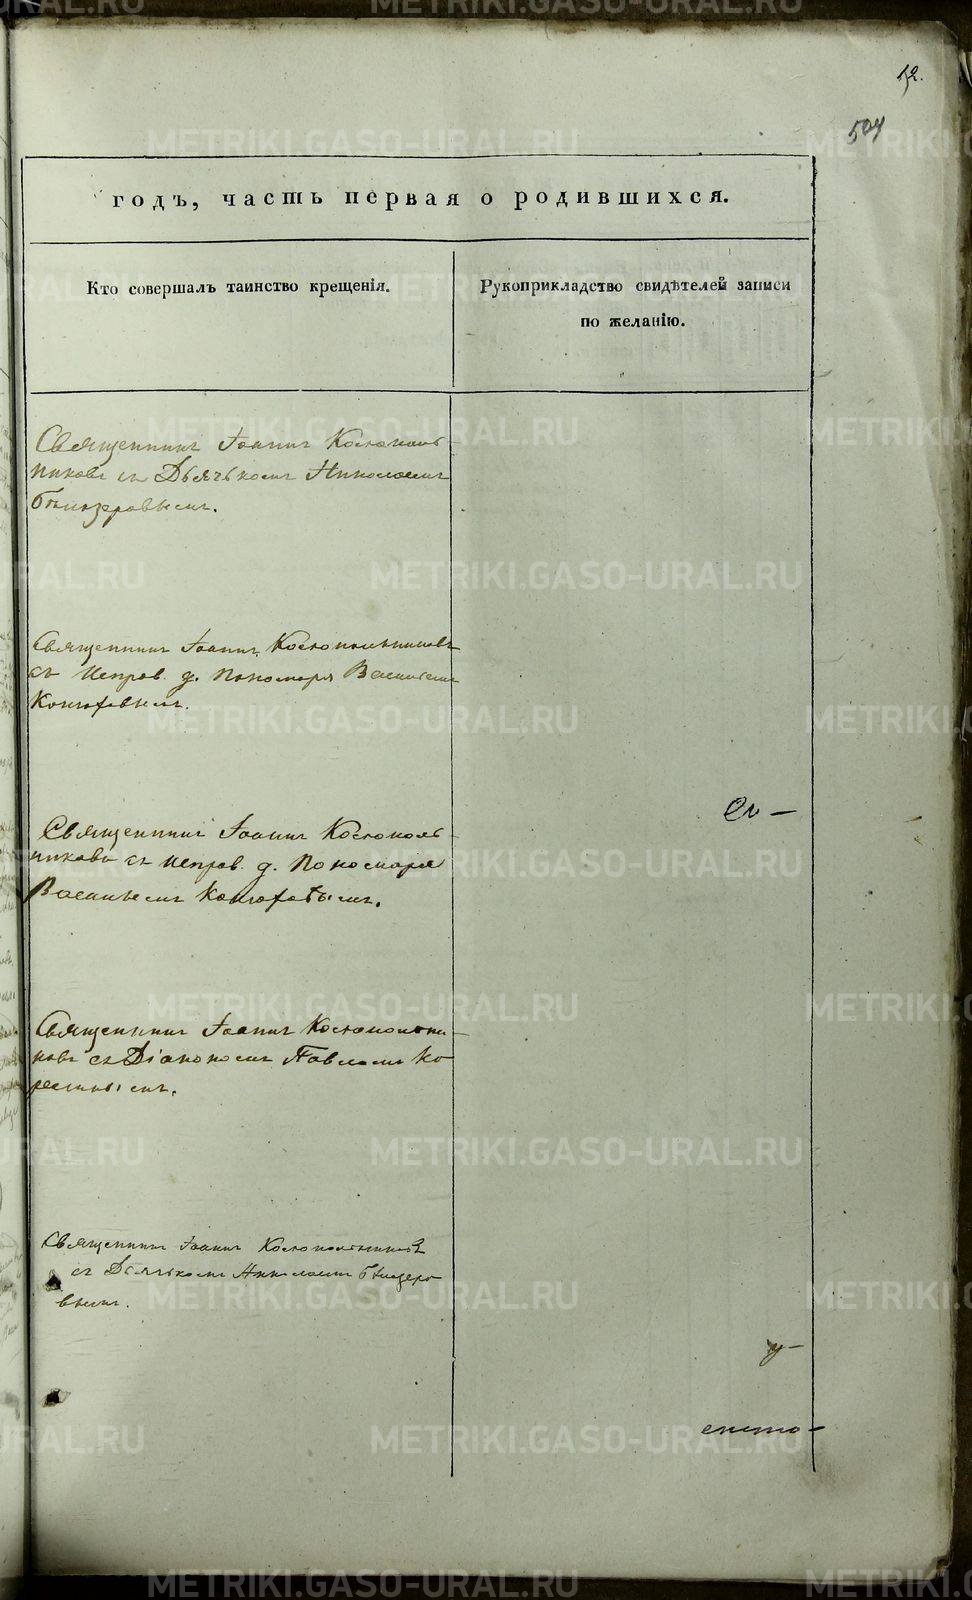 12.
504
годъ, часть первая о родившихся.
Кто совершалъ таинство крещенія.
Рукоприкладство свидѣтелей записи
по желанію.
Священникъ Іоаннъ Костополь-
никовъ съ Дьячькомъ Николаемъ
Бѣлозеровымъ.
Священникъ Іоаннъ Костопольниковъ
съ Исправ. д. Пономаря Васильемъ
Конюховымъ.
Священникъ Іоаннъ Костополь-
никовъ съ исправ. д. Пономаря
Васильемъ Конюховымъ.
Священникъ Іоаннъ Костопольни-
ковъ съ Діакономъ Павломъ Ко
Священникъ Іоаннъ Костопольниковъ
съ Дьячькомъ Николаемъ Бѣлозеро
вымъ.
METRIKI.GASO-URAL.RU